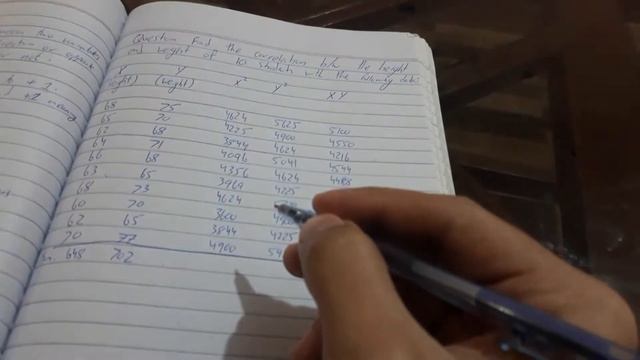 Question Find the correlation b/w the height
and weight of 10 students with the following data
X Y X² Y² XY
(weight)
68 75 4624 5625 5100
65 70 4225 4900 4550
62 68 3844 4624 4216
64 71 4096 5041 4544
66 68 4356 4624 4488
63 65 3969 4225
68 73 4624
60 70 3600
62 65 3844 4225
70 77 4900
648 702